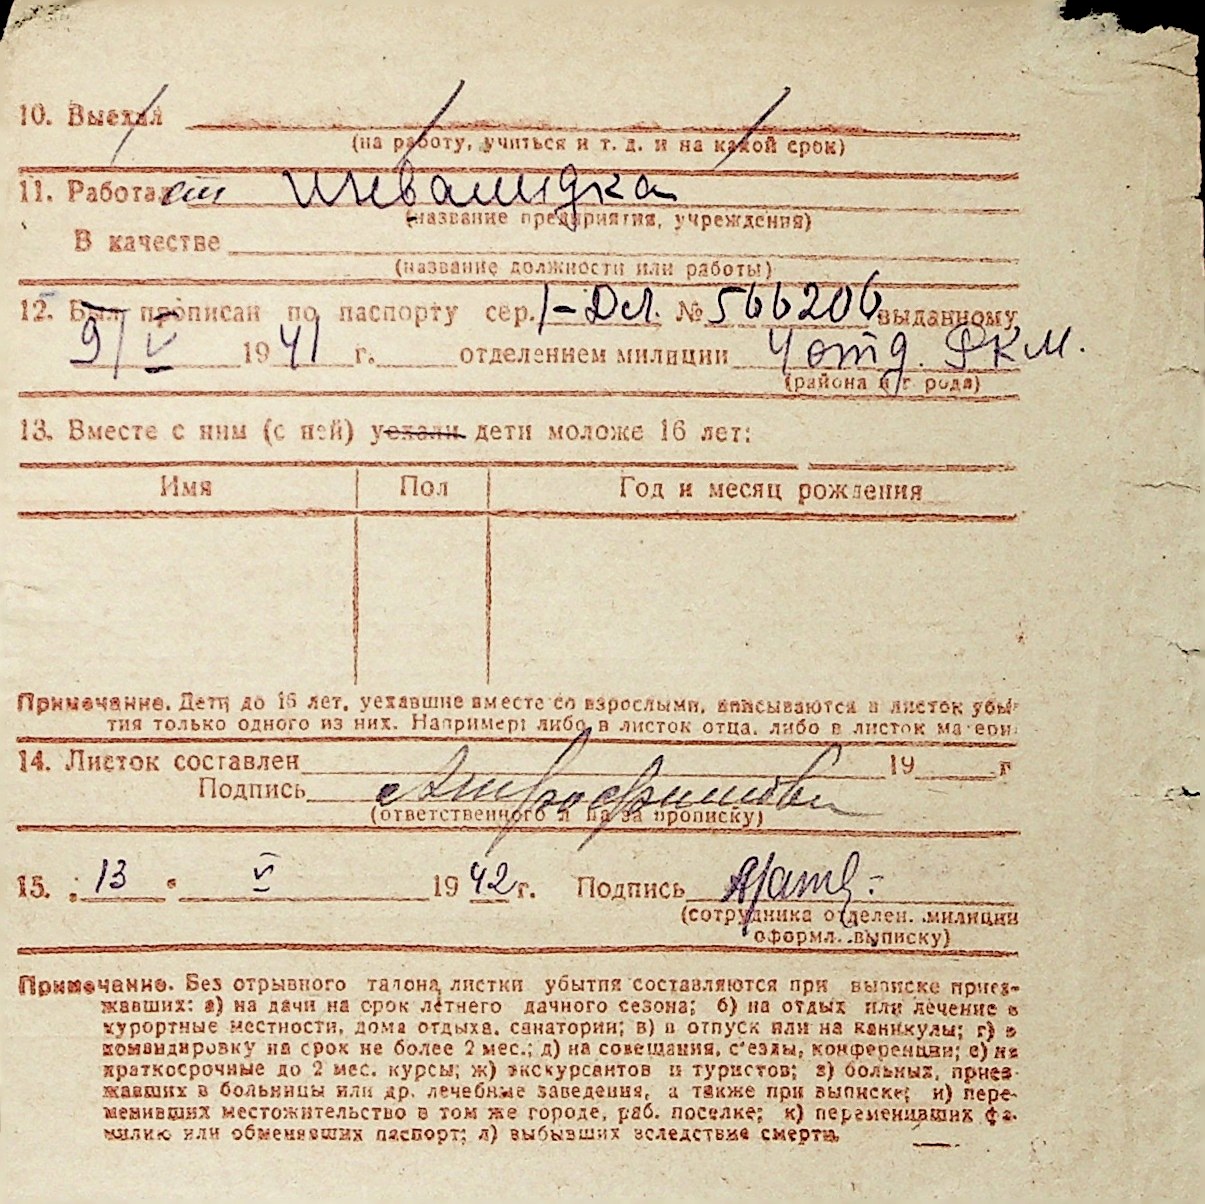 10. Выехал
(на работу, учиться и т. д. и на какой срок)
11. Работает инвалидка
(название предприятия, учреждения)
В качестве
(название должности или работы)
12. Был прописан по паспорту сер. I-Дл. № 566206 выданному
9/V 1941 г. отделением милиции 4 отд. РКМ.
(района и г рода)
13. Вместе с ним (с ней) уехали дети моложе 16 лет:
Имя Пол Год и месяц рождения
Примечание. Дети до 16 лет, уехавшие вместе со взрослыми, вписываются в листок убы-
тия только одного из них. Например: либо в листок отца, либо в листок матери
14. Листок составлен 19 г
Подпись
(ответственного л на за прописку)
15. „13" V 1942 г. Подпись
(сотрудника отделен. милиции
оформл. выписку)
Примечание. Без отрывного талона листки убытия составляются при выписке приез-
жавших: а) на дачи на срок летнего дачного сезона; б) на отдых или лечение в
курортные местности, дома отдыха, санатории; в) в отпуск или на каникулы; г) в
командировку на срок не более 2 мес.; д) на совещания, с'езды, конференции; е) на
краткосрочные до 2 мес. курсы; ж) экскурсантов и туристов; з) больных, приез-
жавших в больницы или др. лечебные заведения, а также при выписке; и) пере-
менивших местожительство в том же городе, раб. поселке; к) переменивших фа-
милию или обменявших паспорт; л) выбывших вследствие смерти.